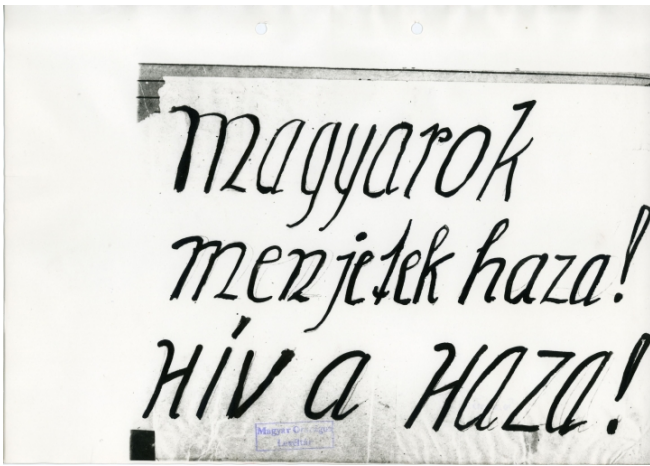 Magyarok
menjetek haza!
Hív a HAZA!
Magyar
Levéltár